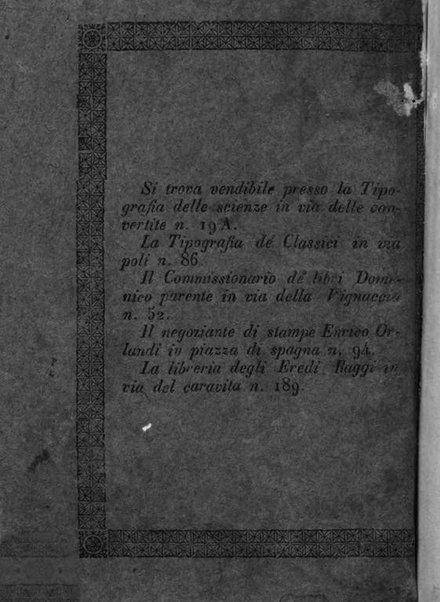 Si trova vendibile presso la Tipo-
grafia delle scienze in via delle con-
vertite n. 19 A.
La Tipografia de' Classici in via
poli n. 86.
Il Commissionario de' libri Dome-
nico parente in via della Vignaccia
n. 52.
Il negoziante di stampe Enrico Or-
landi in piazza di spagna n. 94.
La libreria degli Eredi Raggi in
via del caravita n. 189.